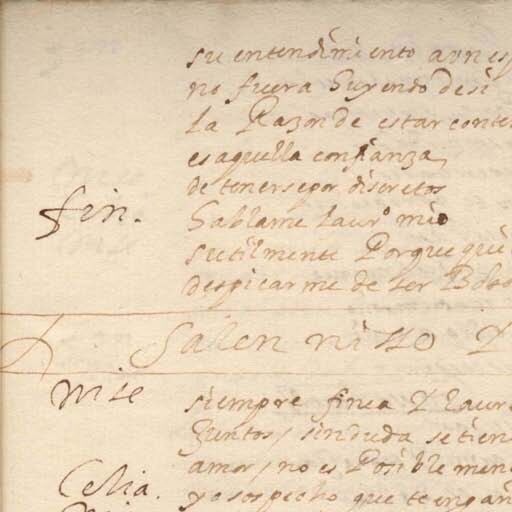 su entendimiento aun es
no fuera Huyendo de si
la Razon de estar conte
es aquella confianza
de tenerse por discretos
fin. Hablame laurº mio
sutilmente Porque qui
despicarme de ser Bobo
Salen niso Y
nise siempre finea Y laure
Juntos / sin duda se tien
amor / no es Posible
Celia. yo sospecho que te engañ